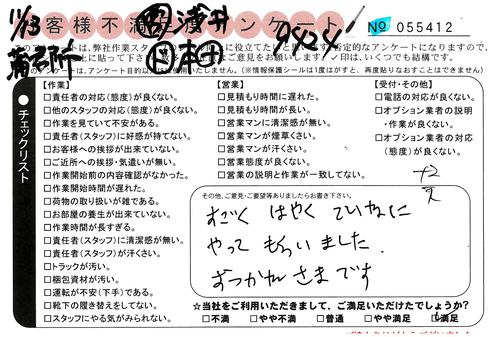 お客様不満足度アンケート
№ 055412
11/13
浅井
本田
9424
このアンケートは、弊社作業スタ
に役立てたいと思います。否定的なアンケートになりますので、
上に貼って下さい。
ご意見をお願いします。✓印は、いくつでも結構です。
アンケートは、アンケート目的以外に使用いたしません。(※情報保護シールは1度はがすと、再度貼りなおすことはできません)
●チェックリスト
【作業】
□責任者の対応(態度)が良くない。
□他のスタッフの対応(態度)が良くない。
□作業を見ていて不安がある。
□責任者(スタッフ)に好感が持てない。
□お客様への挨拶が出来ていない。
□ご近所への挨拶・気遣いが無い。
□作業開始前の内容確認がなかった。
□作業開始時間が遅れた。
□荷物の取り扱いが雑である。
□お部屋の養生が出来ていない。
□作業時間が長すぎる。
□責任者(スタッフ)に清潔感が無い。
□責任者(スタッフ)が汗くさい。
□トラックが汚い。
□梱包資材が汚い。
□運転が不安(下手)である。
□靴下の履き替えをしてない。
□スタッフにやる気がみられない。
【営業】
□見積もり時間に遅れた。
□見積もり時間が長い。
□営業マンに清潔感が無い。
□営業マンが煙草くさい。
□営業マンが汗くさい。
□営業態度が良くない。
□営業の説明と作業が一致してない。
【受付・その他】
□電話の対応が良くない。
□オプション業者の説明
・作業が良くない。
□オプション業者の対応
(態度)が良くない。
その他、ご意見・ご要望等ありましたらお書き下さい。
すごく はやく ていねいに
やって もらいました。
おつかれ さま です
☆当社をご利用いただきまして、ご満足いただけたでしょうか?
□不満 □やや不満 □普通 □やや満足 □満足